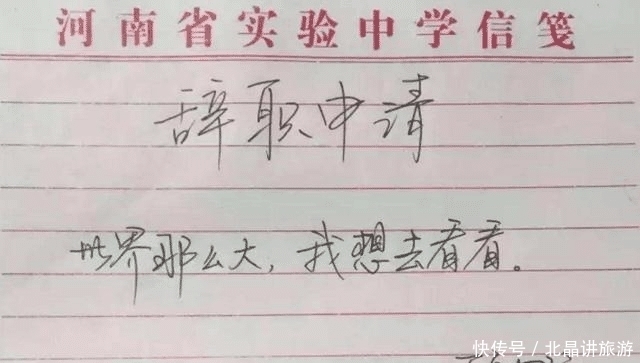 河南省实验中学信笺
辞职申请
世界那么大，我想去看看。
快传号／北晶讲旅游